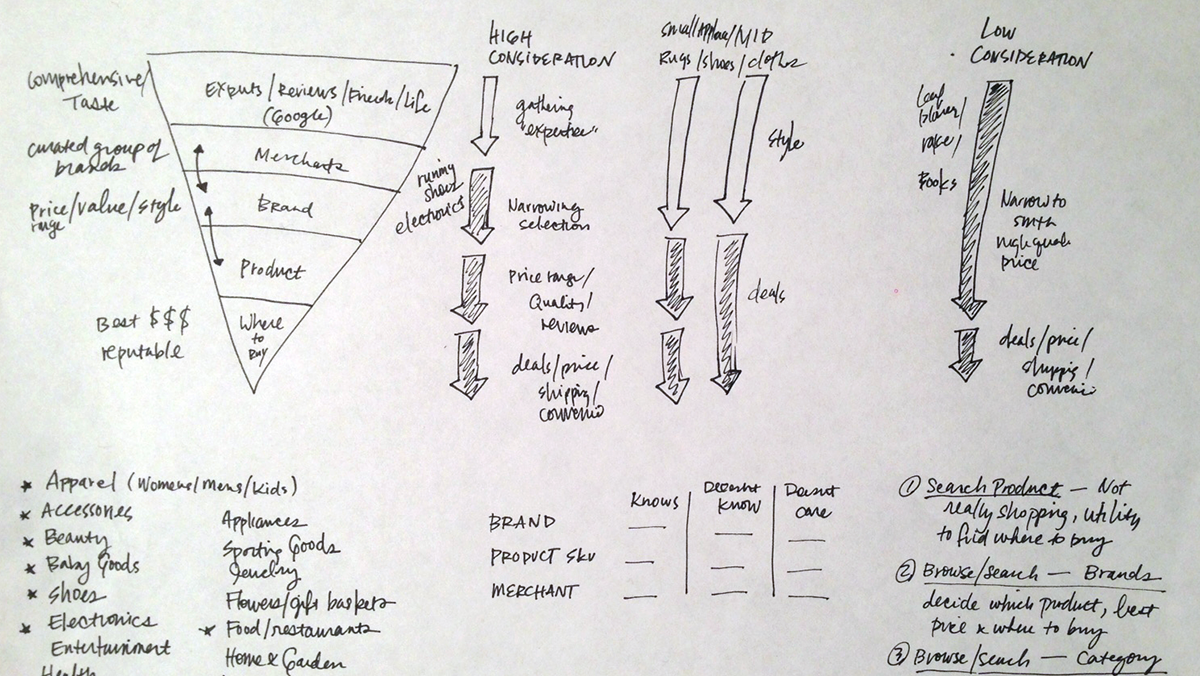 Comprehensive/
Taste
Experts/Reviews/Friends/Life
(Google)
curated group of
brands
Merchants
Price/value/style
range
Brand
Product
Best $$$
reputable
Where
to
Buy
HIGH
CONSIDERATION
gathering
"expertise"
running
shoes
electronics
Narrowing
selection
Price range/
Quality/
reviews
deals/price/
shipping/
MID
Rugs/shoes/clothes
style
deals
LOW
CONSIDERATION
Leaf
blower/
rake/
Books
Narrow to
price
deals/price/
shipping/
* Apparel (Womens/mens/kids)
* Accessories
* Beauty
* Baby Goods
* Shoes
* Electronics
Entertainment
Health
Appliances
Sporting Goods
Jewelry
Flowers/gift baskets
* Food/restaurants
Home & Garden
Knows
Doesnt
know
Doesnt
care
BRAND
PRODUCT SKU
MERCHANT
① Search Product — Not
really shopping, utility
to find where to buy
② Browse/search — Brands
decide which product, best
price & where to buy
③ Browse/search — Category